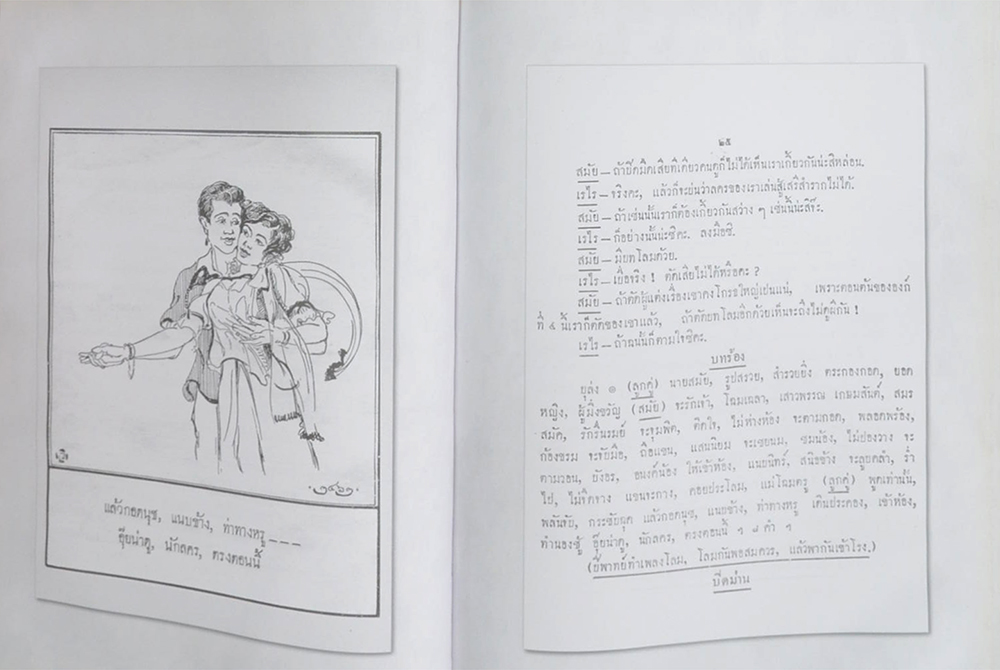 ๒๔๖๑
แล้วกอดนุช, แนบข้าง, ท่าทางหรู ---
อุ๊ยน่าดู, นักลคร, ตรงตอนนี้
๒๕
สมัย — ถ้ายึดมิดเสียทีเดียวคนดูก็ไม่ได้เห็นเราเกี้ยวกันน่ะสิหล่อน.
เรไร — จริงคะ, แล้วก็จะย่นว่าลครของเราเล่นสู้เสรีสำราญไม่ได้.
สมัย — ถ้าเช่นนั้นเราก็ต้องเกี้ยวกันสว่าง ๆ เช่นนี้น่ะสิจ๊ะ.
เรไร — ก็อย่างนั้นน่ะซิคะ. ลงมือซิ.
สมัย — มีบทโลมด้วย.
เรไร — เบื่อจริง ! ตัดเสียไม่ได้หรือคะ ?
สมัย — ถ้าตัดผู้แต่งเรื่องเขาคงโกรธใหญ่เป็นแน่, เพราะตอนต้นขององก์
ที่ ๔ นี้เราก็ตัดของเขาแล้ว, ถ้าตัดบทโลมอีกด้วยเห็นจะถึงไม่ดูผีกัน !
เรไร — ถ้าฉนั้นก็ตามใจซิคะ.
บทร้อง
ยุล่ง ๑ (ลูกคู่) นายสมัย, รูปสรวย, สำรวยยิ่ง ตระกองกอด, ยอด
หญิง, ผู้มิ่งขวัญ (สมัย) จะรักเจ้า, โฉมเฉลา, เสาวพรรณ เกษมสันต์, สมร
สมัค, รักรื่นรมย์ จะจุมพิต, ติดใจ, ไม่ห่างห้อง จะตามกอด, พลอดพร้อง,
ก้องขรม จะจับมือ, ถือแขน, แสนนิยม จะเชยนม, ชมน้อง, ไม่ย่องวาง จะ
ตามวอน, ยังอร, อนงค์น้อง ให้เข้าห้อง, แนบนิทร์, สนิธข้าง จะลูบคลำ, ร่ำ
ไป, ไม่จืดจาง แขนจะกาง, คอยประโลม, แม่โฉมตรู (ลูกคู่) พูดเท่านั้น,
พลันขยับ, กระชับฉุด แล้วกอดนุช, แนบข้าง, ท่าทางหรู เดินประคอง, เข้าห้อง,
ทำนองชู้ อุ๊ยน่าดู, นักลคร, ตรงตอนนี้ ฯ ๘ คำ ฯ
(ปี่พาทย์ทำเพลงโลม, โลมกันพอสมควร, แล้วพากันเข้าโรง.)
ปิดม่าน